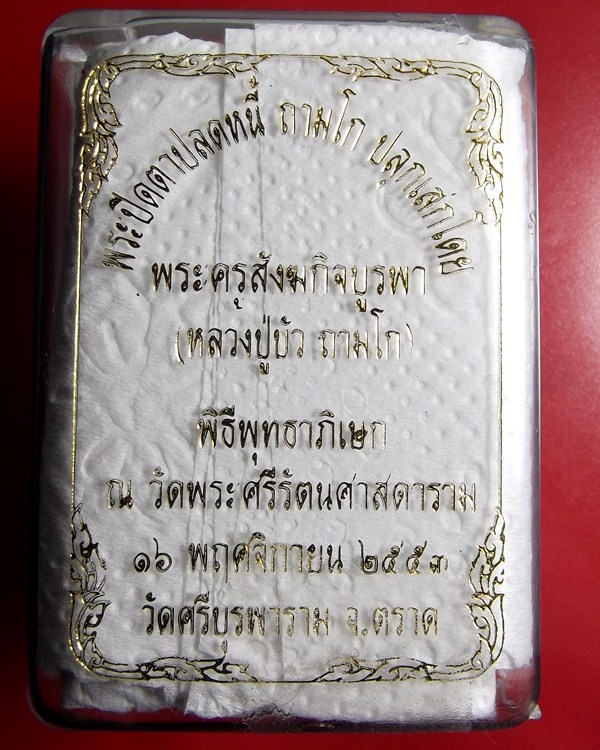 พระปิดตาปลดหนี้ ถามโก ปลุกเสกโดย
พระครูสังฆกิจบูรพา
(หลวงปู่บัว ถามโก)
พิธีพุทธาภิเษก
ณ วัดพระศรีรัตนศาสดาราม
๑๖ พฤศจิกายน ๒๕๕๓
วัดศรีบูรพาราม จ.ตราด